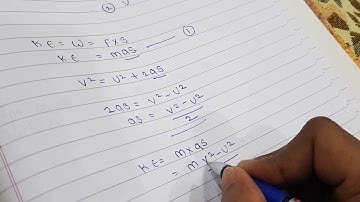 ② v
KE = W = F×S
KE = mas ①
v² = u² + 2as
2as = v² - u²
as = v² - u²
2
KE = m×as
= m v² - u²